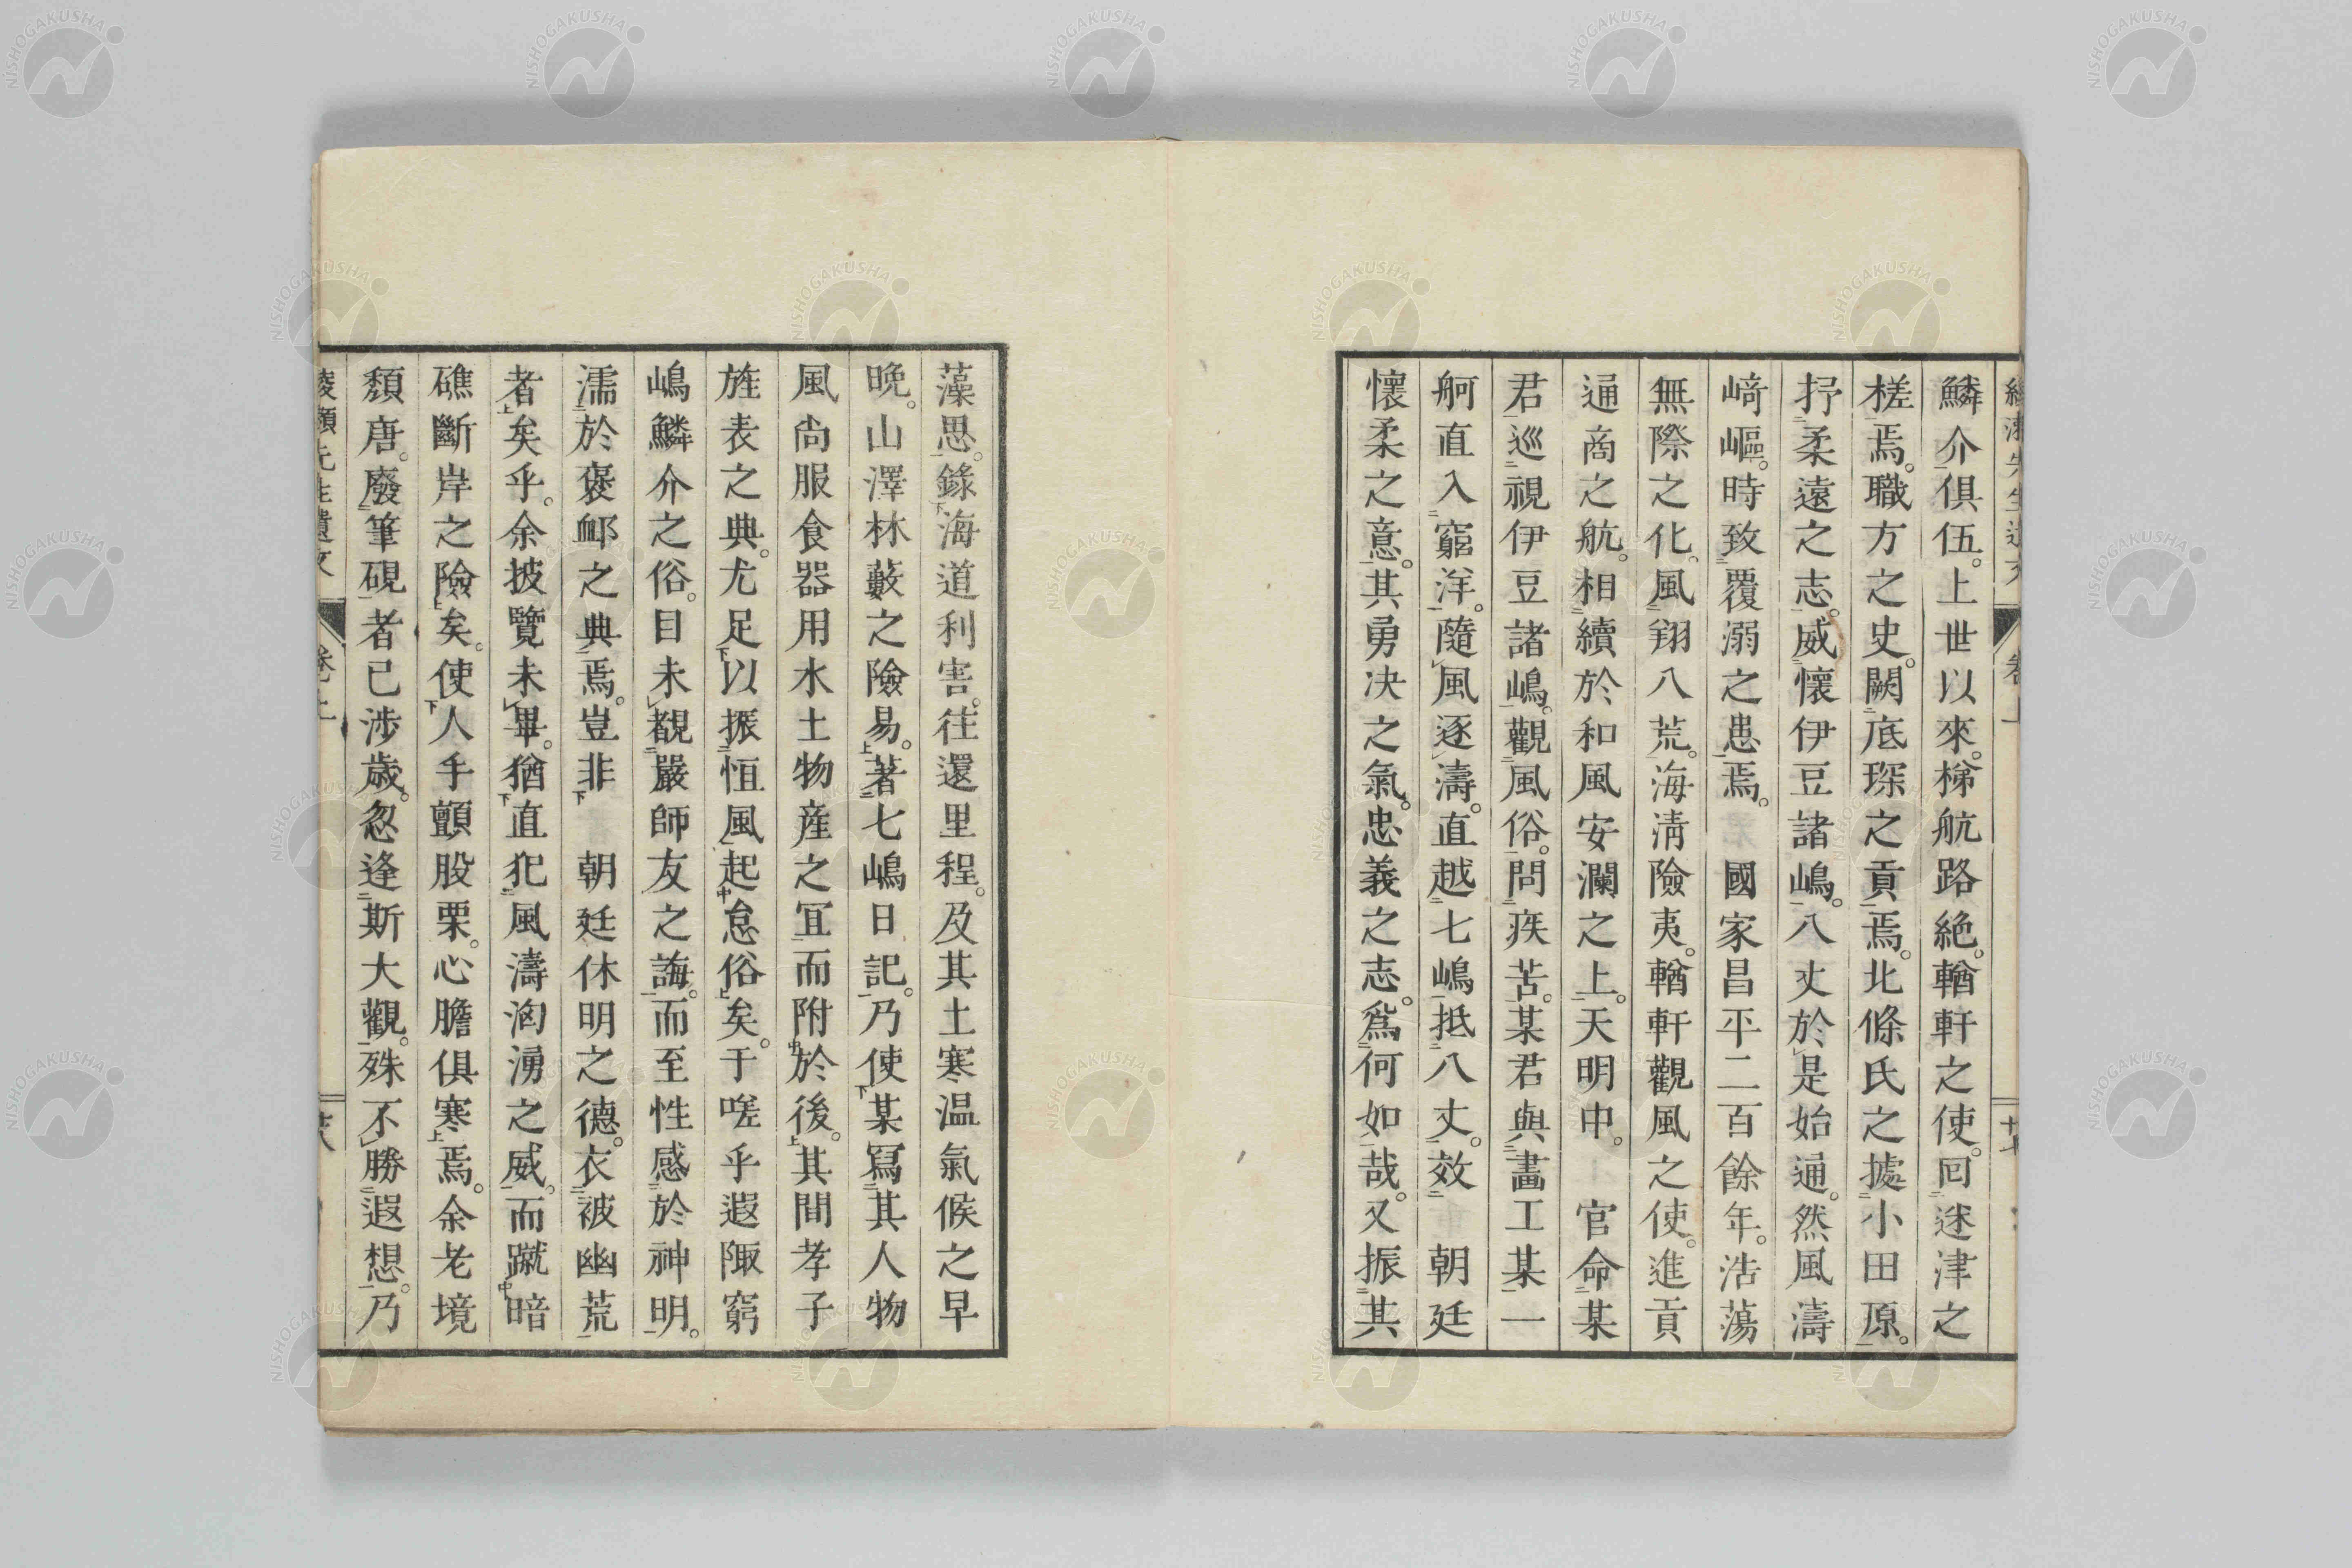 鱗介俱伍。上世以來。梯航路絶。輶軒之使。囘迷津之
槎焉。職方之史。闕底琛之貢焉。北條氏之據小田原。
抒柔遠之志。威懷伊豆諸嶋。八丈於是始通。然風濤
﨑嶇。時致覆溺之患焉。國家昌平二百餘年。浩蕩
無際之化。風翔八荒。海淸險夷。輶軒觀風之使。進貢
通商之航。相續於和風安瀾之上。天明中。官命某
君巡視伊豆諸嶋。觀風俗。問疾苦。某君與畵工某一
舸直入窮洋。隨風逐濤。直越七嶋抵八丈。效朝廷
懷柔之意。其勇决之氣。忠義之志。爲何如哉。又振其
藻思。錄海道利害。往還里程。及其土寒温氣候之早
晩。山澤林藪之險易。著七嶋日記。乃使某寫其人物
風尙服食器用水土物産之冝而附於後。其間孝子
旌表之典。尤足以振恒風起怠俗矣。于嗟乎遐陬窮
嶋鱗介之俗。目未覩嚴師友之誨。而至性感於神明。
濡於褒䘏之典焉。豈非朝廷休明之德。衣被幽荒
者矣乎。余披覽未畢。猶直犯風濤洶湧之威。而蹴暗
礁斷岸之險矣。使人手顫股栗。心膽俱寒焉。余老境
頽唐。廢筆硯者已涉歳。忽逢斯大觀。殊不勝遐想。乃
卷上